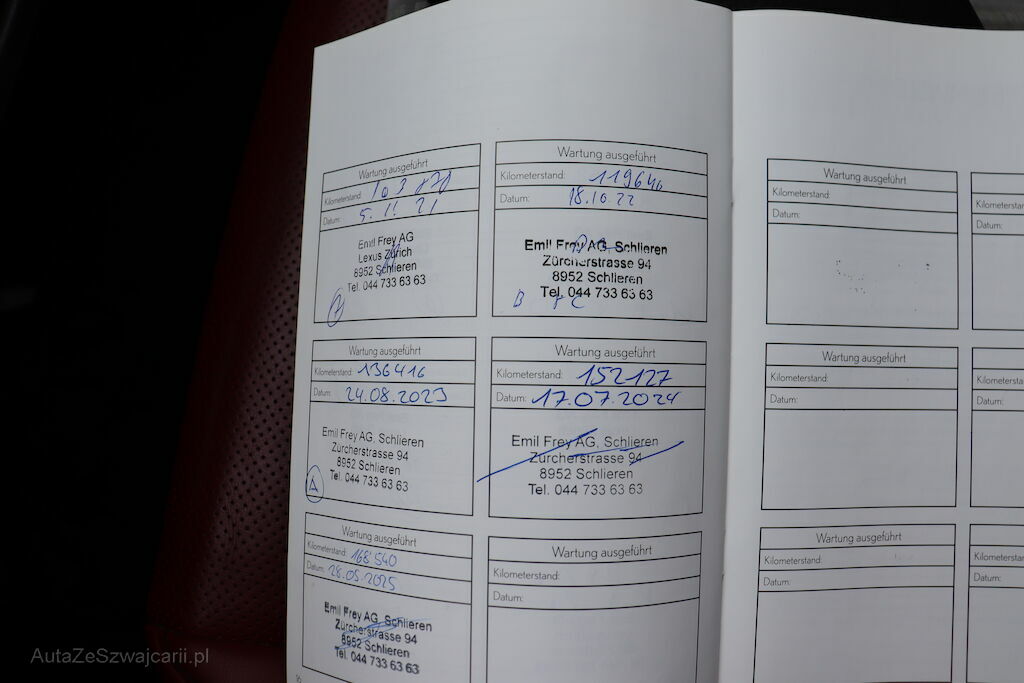 Wartung ausgeführt
Kilometerstand:
Datum: 5. 11. 21
Emil Frey AG
Lexus Zürich
8952 Schlieren
Tel. 044 733 63 63
Wartung ausgeführt
Kilometerstand: 119640
Datum: 18.10.22
Emil Frey AG, Schlieren
Zürcherstrasse 94
8952 Schlieren
Tel. 044 733 63 63
Wartung ausgeführt
Kilometerstand: 136416
Datum: 24.08.2023
Emil Frey AG, Schlieren
Zürcherstrasse 94
8952 Schlieren
Tel. 044 733 63 63
A
Wartung ausgeführt
Kilometerstand: 152127
Datum: 17.07.2024
Emil Frey AG, Schlieren
Zürcherstrasse 94
8952 Schlieren
Tel. 044 733 63 63
Wartung ausgeführt
Kilometerstand: 168'540
Datum: 28.05.2025
Emil Frey AG, Schlieren
Zürcherstrasse 94
8952 Schlieren
Tel. 044 733 63 63
Wartung ausgeführt
Kilometerstand:
Datum:
Wartung ausgeführt
Kilometerstand:
Datum:
Kilometerstand
Datum:
Wartung ausgeführt
Kilometerstand:
Datum:
Kilometersta
Datum:
Wartung ausgeführt
Kilometerstand:
Datum:
Kilometersta
Datum:
AutaZeSzwajcarii.pl